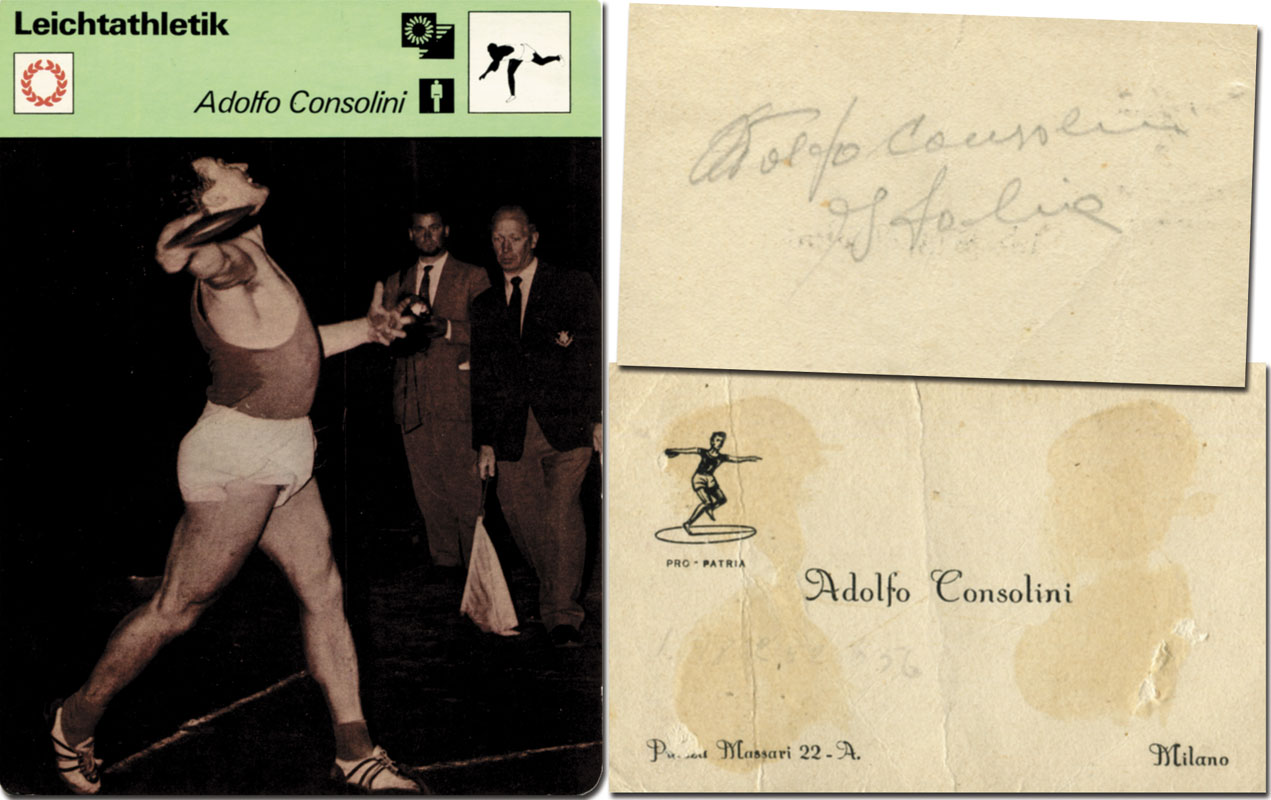 Leichtathletik
Adolfo Consolini
Adolfo Consolini
Italia
PRO - PATRIA
Adolfo Consolini
Massari 22 - A.
Milano